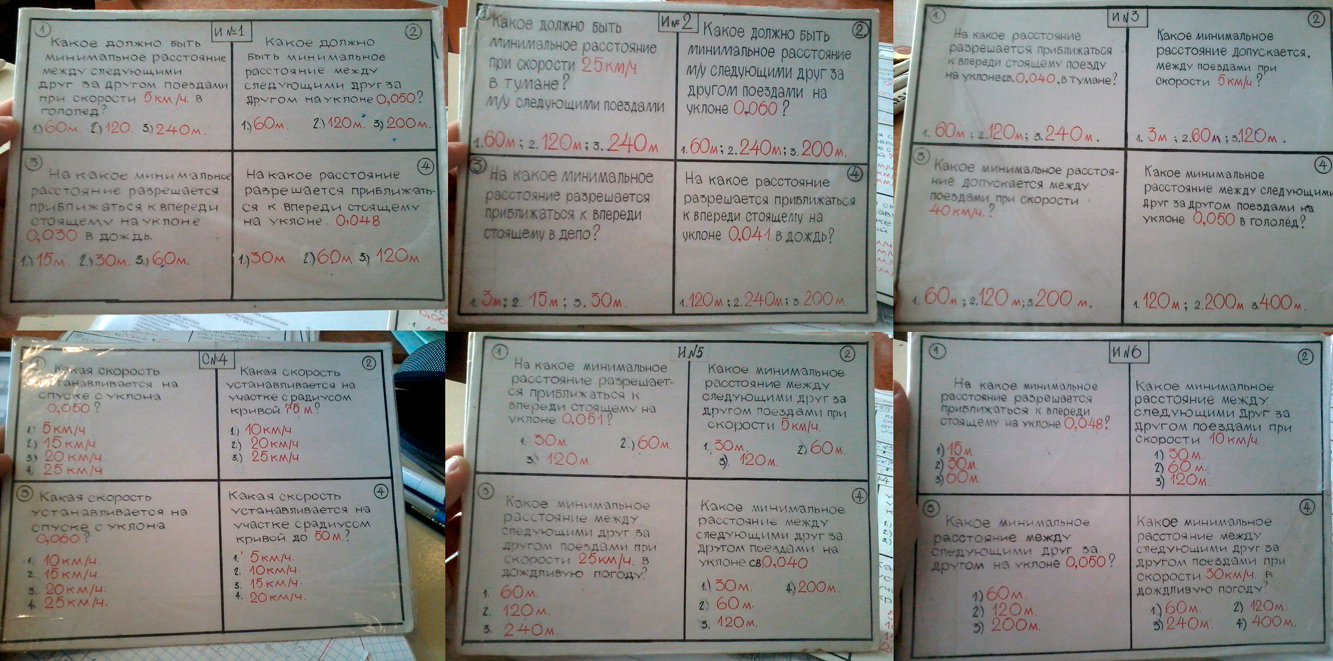 И №1
①
Какое должно быть
минимальное расстояние
между следующими
друг за другом поездами
при скорости 5 км/ч. в
гололёд?
1) 60м. 2) 120. 3) 240м.
②
Какое должно
быть минимальное
расстояние между
следующими друг за
другом на уклоне 0,050?
1) 60м. 2) 120м. 3) 200м.
③
На какое минимальное
расстояние разрешается
приближаться к впереди
стоящему на уклоне
0,030 в дождь.
1.) 15м. 2.) 30м. 3.) 60м.
④
На какое расстояние
разрешается приближать-
ся к впереди стоящему
на уклоне 0.048
1.) 30м. 2) 60м 3) 120м
И №2
①
Какое должно быть
минимальное расстояние
при скорости 25 км/ч
в тумане?
м/у следующими поездами
1. 60м; 2. 120м; 3. 240м
②
Какое должно быть
минимальное расстояние
м/у следующими друг за
другом поездами на
уклоне 0,060?
1. 60м; 2. 240м; 3. 200м.
③
На какое минимальное
расстояние разрешается
приближаться к впереди
стоящему в депо?
1. 3м; 2. 15м; 3. 30м.
④
На какое расстояние
разрешается приближаться
к впереди стоящему на
уклоне 0,041 в дождь?
1. 120м; 2. 240м; 3. 200м.
И №3
①
На какое расстояние
разрешается приближаться
к впереди стоящему поезду
на уклоне св.0,040, в тумане?
1. 60м; 2. 120м; 3. 240м.
②
Какое минимальное
расстояние допускается,
между поездами при
скорости 5 км/ч?
1. 3м; 2. 60м; 3. 120м.
③
Какое минимальное расстоя-
ние допускается между
поездами при скорости
40 км/ч.?
1. 60м; 2. 120м; 3. 200м.
④
Какое минимальное
расстояние между следующими
друг за другом поездами на
уклоне 0,050 в гололёд?
1. 120м; 2. 200м 3. 400м.
С №4
①
Какая скорость
устанавливается на
спуске с уклона
0,050?
1. 5 км/ч
2.) 15 км/ч
3) 20 км/ч
4. 25 км/ч
②
Какая скорость
устанавливается на
участке с радиусом
кривой 75 м?
1.) 10 км/ч
2.) 20 км/ч
3.) 25 км/ч
③
Какая скорость
устанавливается на
спуске с уклона
0,060?
1. 10 км/ч.
2. 15 км/ч.
3. 20 км/ч.
4. 25 км/ч.
④
Какая скорость
устанавливается на
участке с радиусом
кривой до 50 м?
1. 5 км/ч.
2. 10 км/ч.
3. 15 км/ч.
4. 20 км/ч.
И №5
①
На какое минимальное
расстояние разрешает-
ся приближаться к
впереди стоящему на
уклоне 0.051?
1. 30м 2.) 60м.
3. 120м
②
Какое минимальное
расстояние между
следующими друг за
другом поездами при
скорости 5 км/ч.
1. 30м. 2) 60м.
3) 120м.
③
Какое минимальное
расстояние между
следующими друг за
другом поездами при
скорости 25 км/ч. в
дождливую погоду?
1. 60м.
2. 120м.
3. 240м.
④
Какое минимальное
расстояние между
следующими друг за
другом поездами на
уклоне св0,040
1) 30м. 4) 200м.
2) 60м.
3. 120м.
И №6
①
На какое минимальное
расстояние разрешается
приближаться к впереди
стоящему на уклоне 0,048?
1) 15м
2) 30м.
3) 60м.
②
Какое минимальное
расстояние между
следующими друг за
другом поездами при
скорости 10 км/ч.
1) 30м.
2) 60м.
3) 120м.
③
Какое минимальное
расстояние между
следующими друг за
другом на уклоне 0,050?
1) 60м.
2) 120м.
3) 200м.
④
Какое минимальное
расстояние между
следующими друг за
другом поездами при
скорости 30 км/ч. в
дождливую погоду?
1.) 60м. 2) 120м.
3) 240м. 4) 400м.